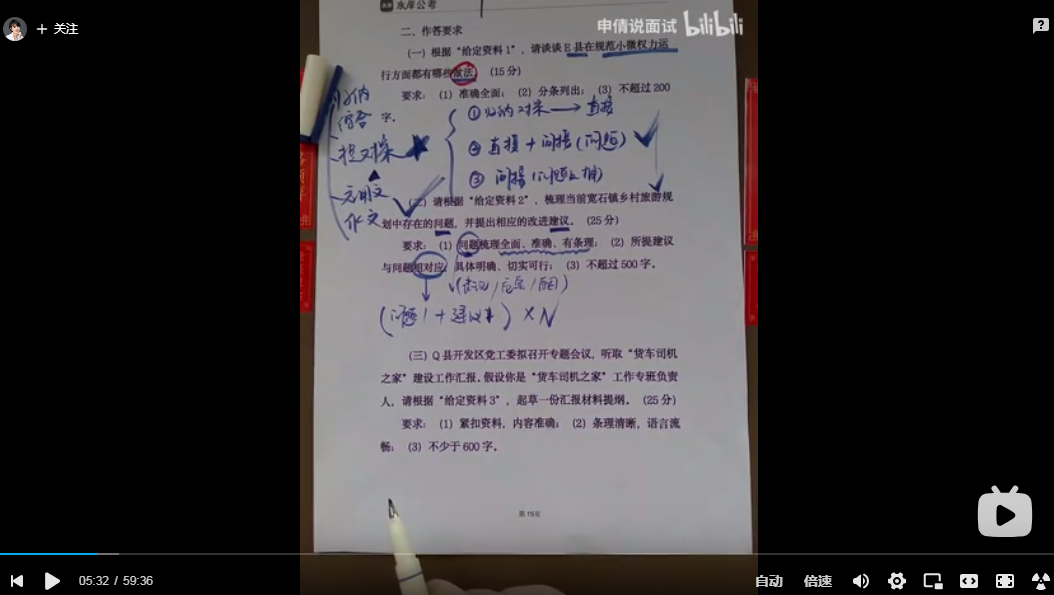 + 关注
永岸公考
申倩说面试 bilibili
二、作答要求
（一）根据“给定资料1”，请谈谈E县在规范小微权力运
行方面都有哪些做法。（15分）
要求：（1）准确全面；（2）分条列出；（3）不超过200
字。
归纳
综合
提对策
应用文
作文
①归纳对策→直接
②直接+间接(问题)
③间接(问题
（二）请根据“给定资料2”，梳理当前宽石镇乡村旅游规
划中存在的问题，并提出相应的改进建议。（25分）
要求：（1）问题梳理全面、准确、有条理；（2）所提建议
与问题相对应，具体明确、切实可行；（3）不超过500字。
(问题1+建议1)×N
（三）Q县开发区党工委拟召开专题会议，听取“货车司机
之家”建设工作汇报。假设你是“货车司机之家”工作专班负责
人，请根据“给定资料3”，起草一份汇报材料提纲。（25分）
要求：（1）紧扣资料，内容准确；（2）条理清晰，语言流
畅；（3）不少于600字。
第15页
05:32 / 59:36
自动
倍速